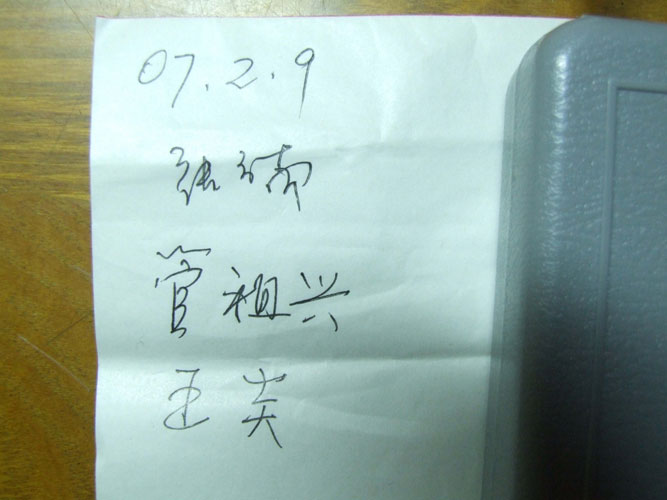 07.2.9
张
管祖兴
王